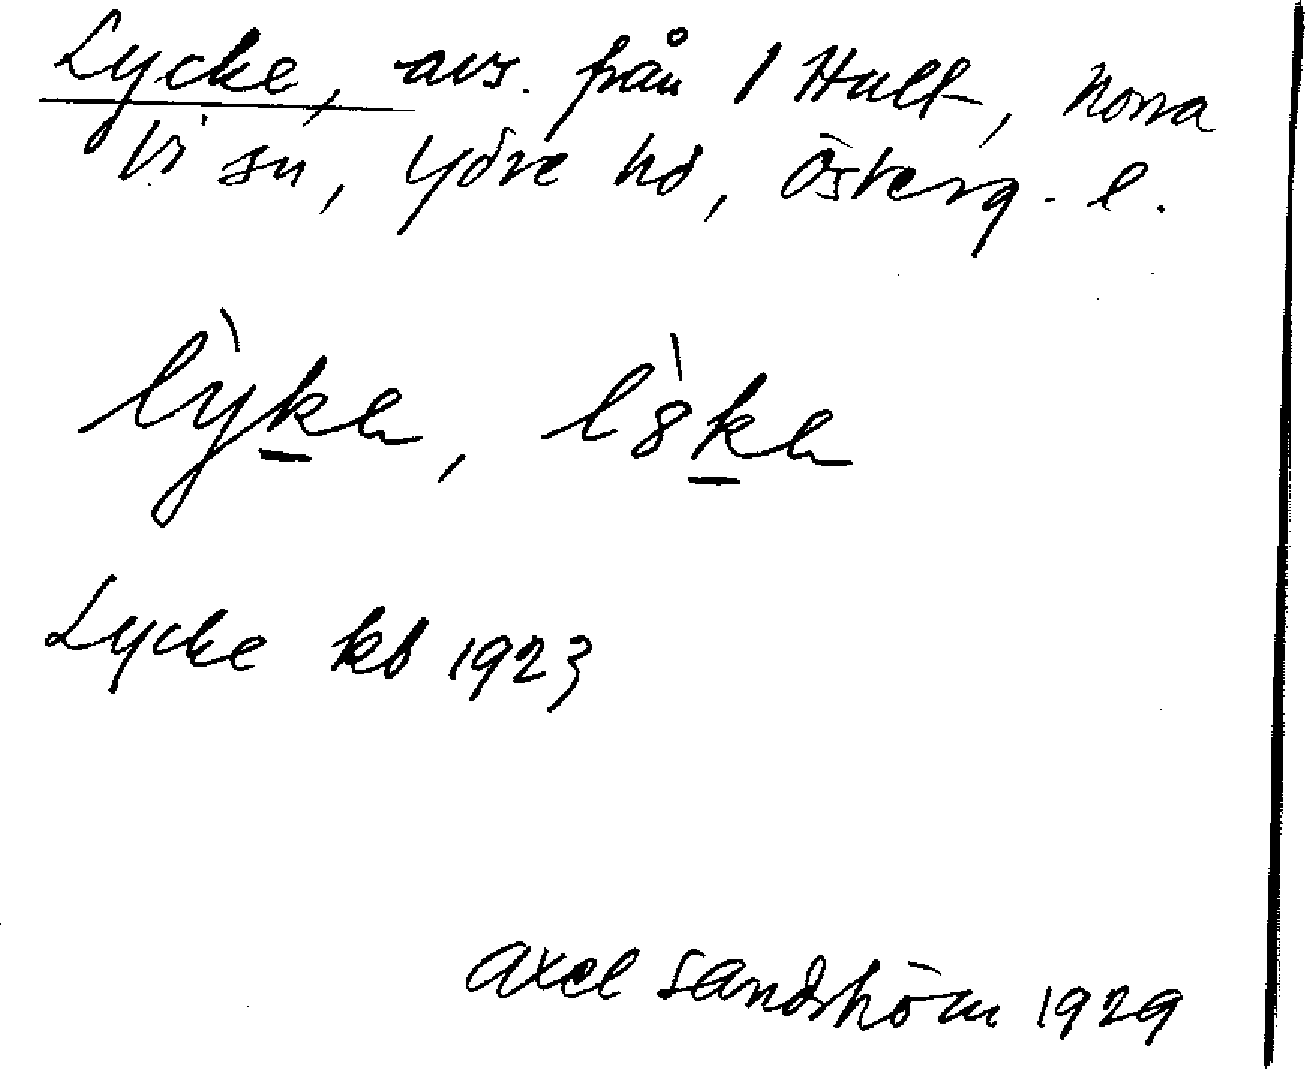 Lycke, avs. från 1 Hult, Norra
Vi sn, Ydre hd, Österg. l.
lỳkə, l8̀kə
Lycke kb 1923
Axel Sandström 1929